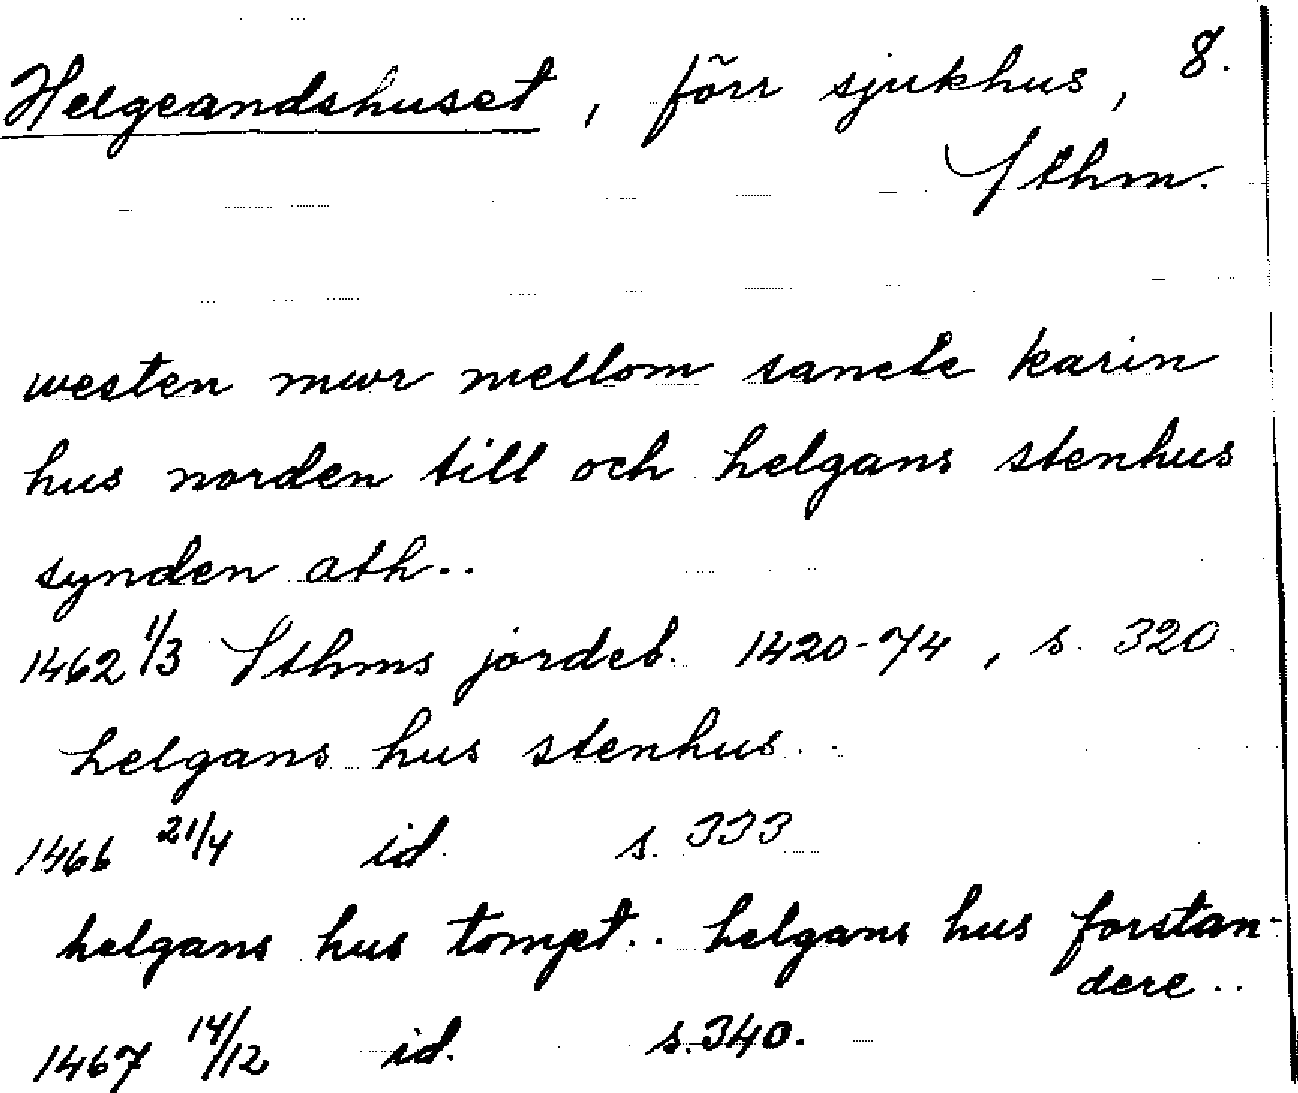 Helgeandshuset, förr sjukhus, 8.
Sthm.
westen mwr mellom sancte karin
hus norden till och helgans stenhus
synden ath..
1462 1/3 Sthms jordeb. 1420-74, s. 320
helgans hus stenhus..
1466 21/4 id. s. 333
helgans hus tompt.. helgans hus forstan-
dere..
1467 14/12 id. s. 340.